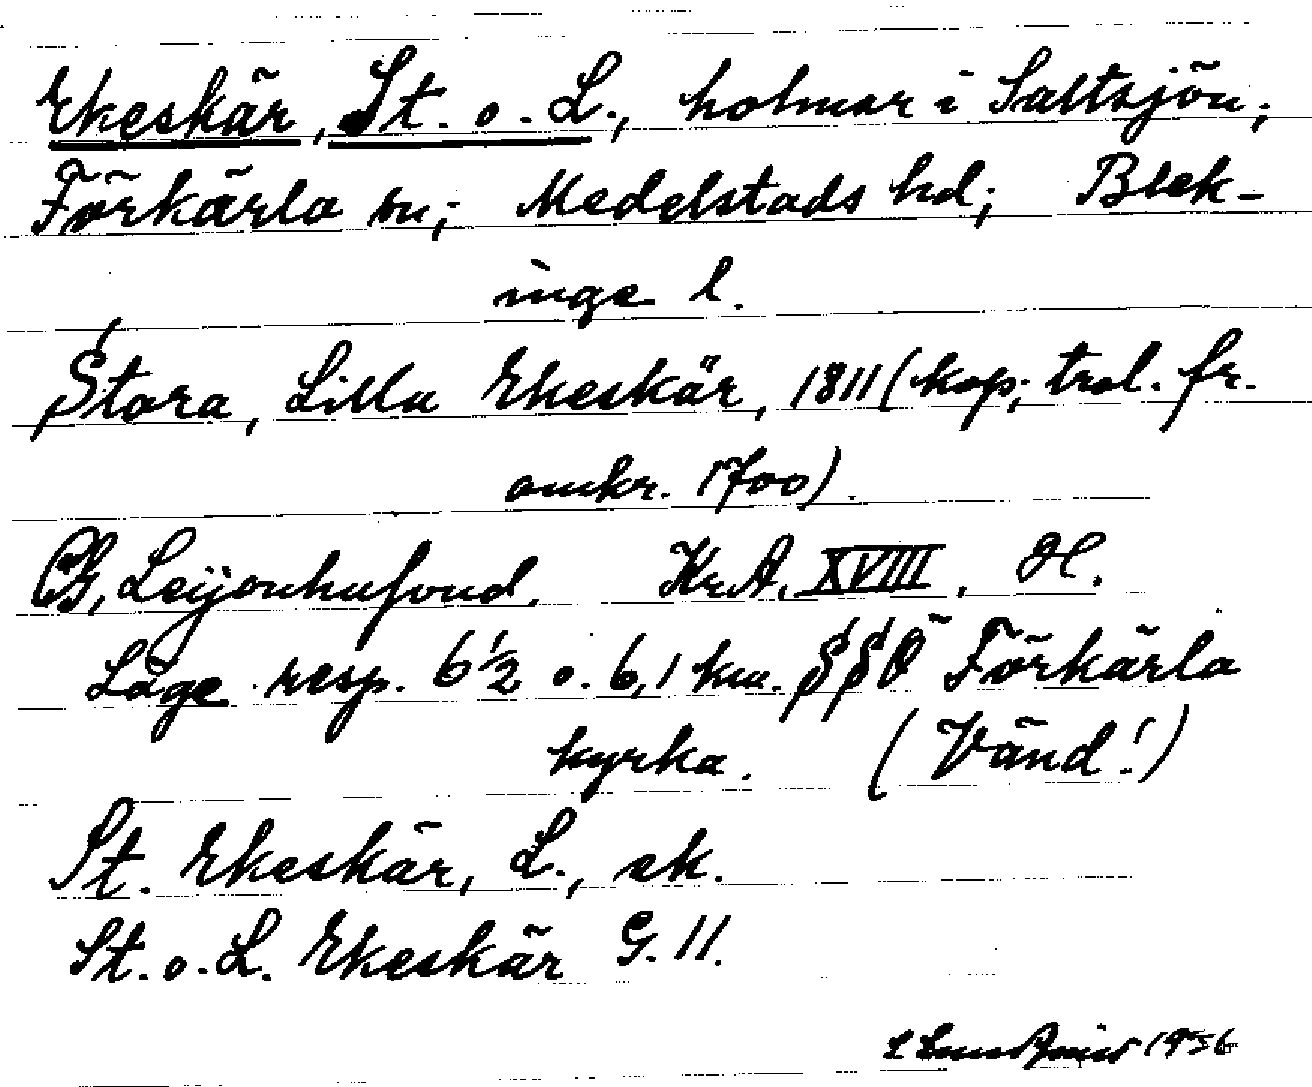 Ekeskär, St. o. L., holmar i Saltsjön;
Förkärla sn; Medelstads hd; Blek-
inge l.
Stora, Lilla Ekeskär, 1811 (kop; trol. fr.
omkr. 1700).
CG, Leijonhufvud. Kr.A. XVIII. H.
Läge resp. 6 1/2 o. 6,1 km. SSÖ Förkärla
kyrka. (Vänd!)
St. Ekeskär, L., ek.
St. o. L. Ekeskär G. 11.
1956